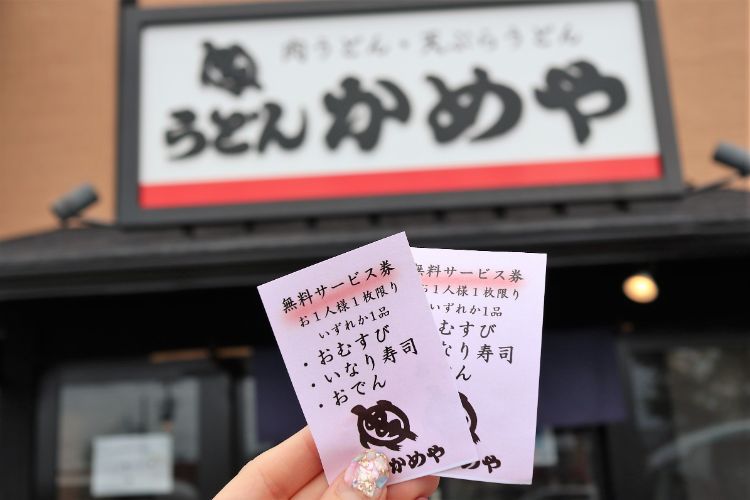 肉うどん・天ぷらうどん
うどん かめや
無料サービス券
お1人様1枚限り
いずれか1品
・おむすび
・いなり寿司
・おでん
かめや
無料サービス券
お1人様1枚限り
いずれか1品
むすび
なり寿司
でん
めや